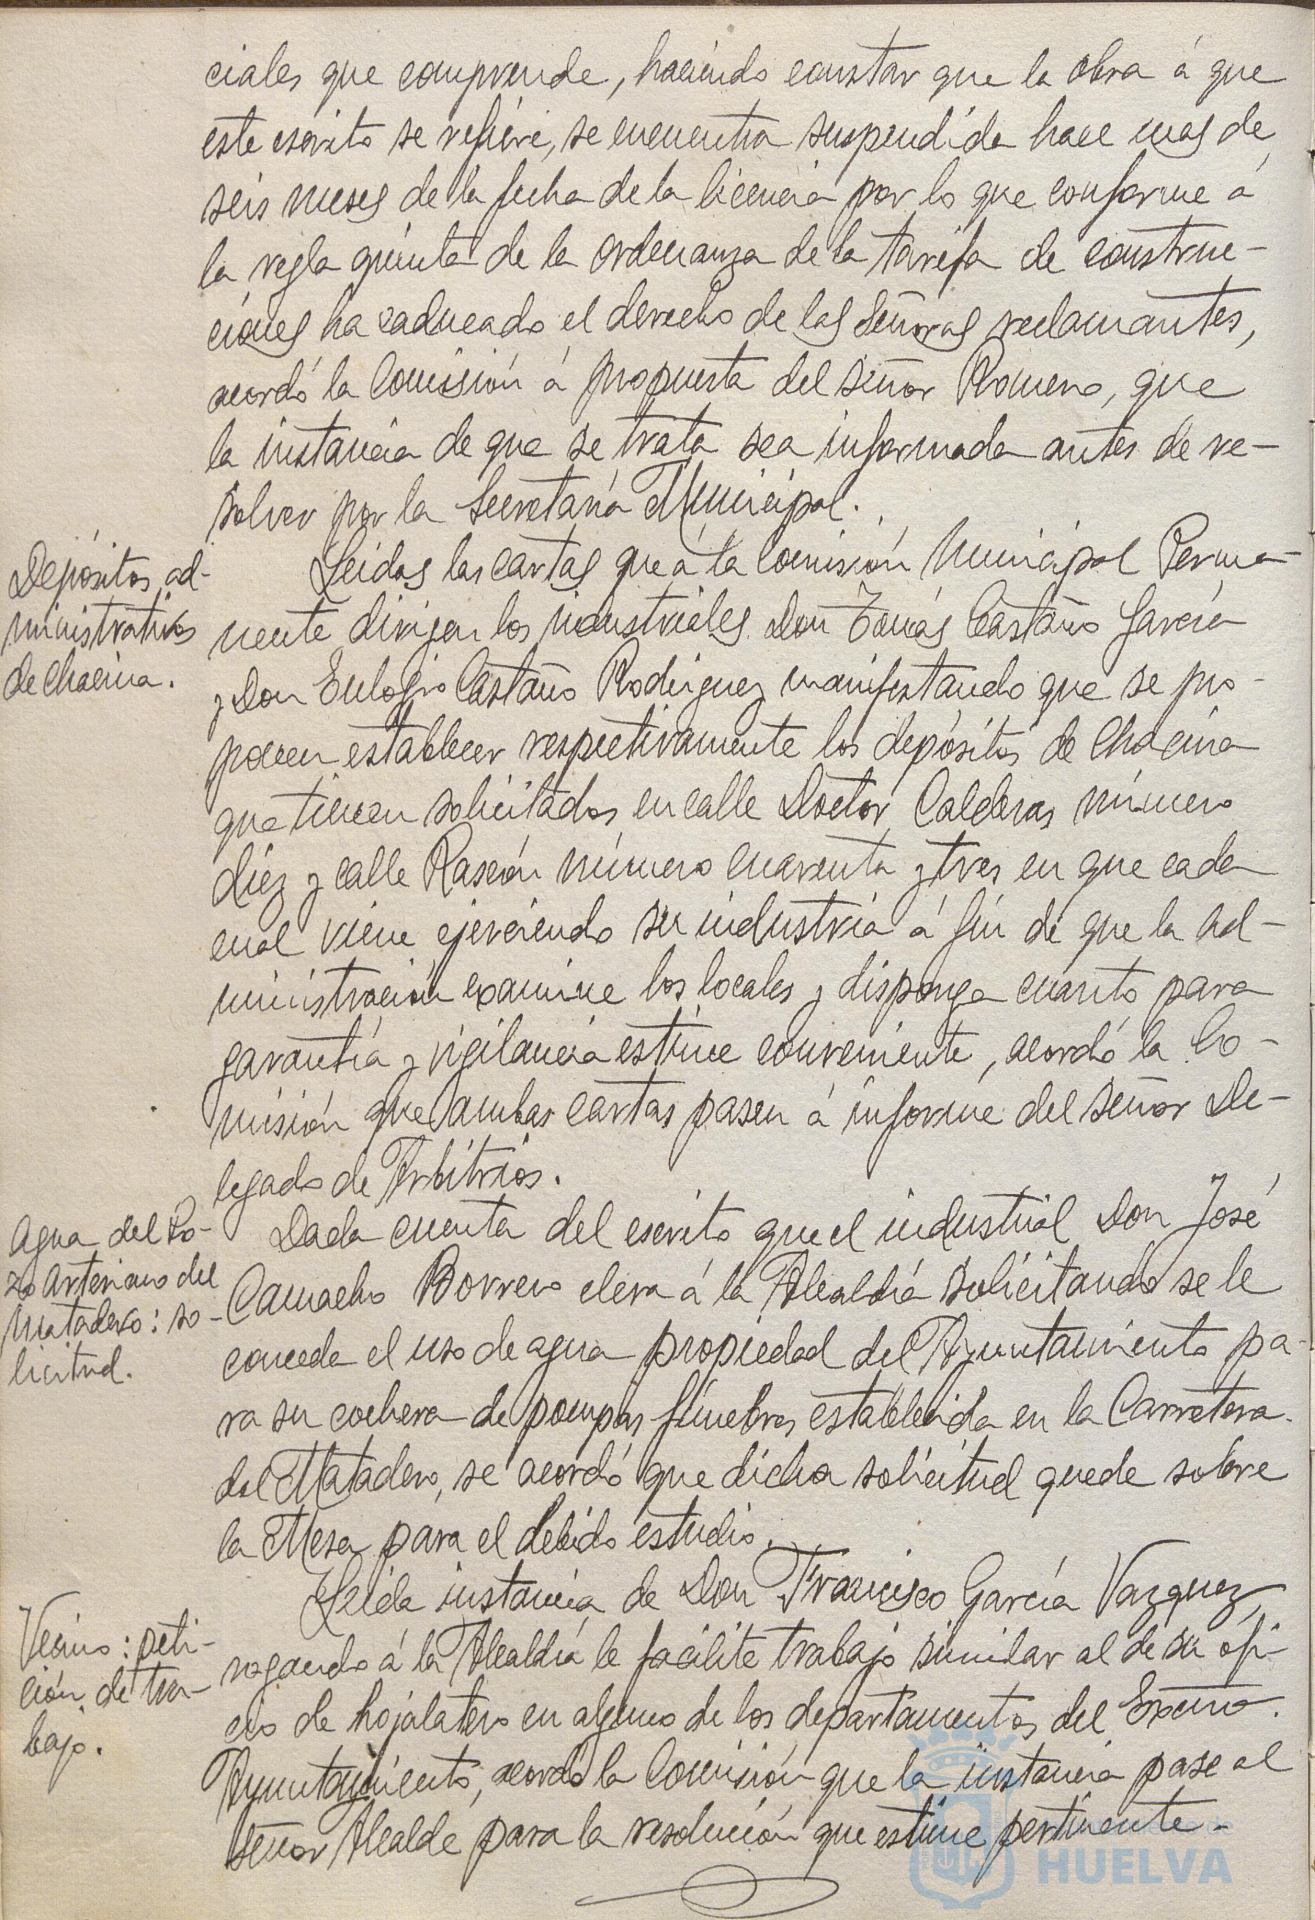 ciales que comprende, haciendo constar que la obra á que
este escrito se refiere, se encuentra suspendida hace mas de
seis meses de la fecha de la licencia por lo que conforme á
la regla quinta de la ordenanza de la tarifa de construc-
ciones ha caducado el derecho de las Señoras reclamantes,
acordó la Comisión á propuesta del señor Romero, que
la instancia de que se trata sea informada antes de re-
solver por la Secretaría Municipal.
Depósitos ad-
ministrativos
de chacina.
Leidas las cartas que á la Comisión Municipal Perma-
nente dirigen los industriales Don Tomás Castaño García
y Don Eulogio Castaño Rodriguez manifestando que se pro-
ponen establecer respectivamente los depósitos de Chacina
que tienen solicitados en calle Doctor Calderas número
diez y calle Rascón número cuarenta y tres en que cada
cual viene ejerciendo su industria á fin de que la Ad-
ministración examine los locales y disponga cuanto para
garantía y vigilancia estime conveniente, acordó la Co-
misión que ambas cartas pasen á informe del señor De-
legado de Arbitrios.
Agua del Po-
zo Arteriano del
Matadero: so-
licitud.
Dada cuenta del escrito que el industrial Don José
Camacho Borrero eleva á la Alcaldía solicitando se le
conceda el uso de agua propiedad del Ayuntamiento pa-
ra su cochera de pompas fúnebres establecida en la Carretera
del Matadero, se acordó que dicha solicitud quede sobre
la Mesa para el debido estudio.
Vecino: peti-
ción de tra-
bajo.
Leida instancia de Don Francisco García Vazquez
rogando á la Alcaldía le facilite trabajo similar al de su ofi-
cio de hojalatero en alguno de los departamentos del Excmo.
Ayuntamiento, acordó la Comisión que la instancia pase al
señor Alcalde para la resolución que estime pertinente.
HUELVA